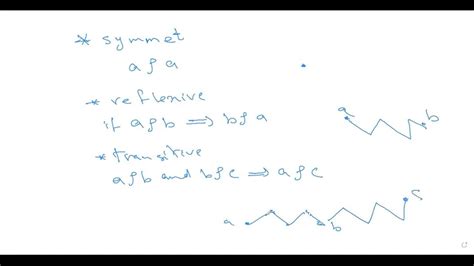 * symmet
a ρ a
* reflexive
if a ρ b ⟹ b ρ a
* transitive
a ρ b and b ρ c ⟹ a ρ c
a
b
c
a
b